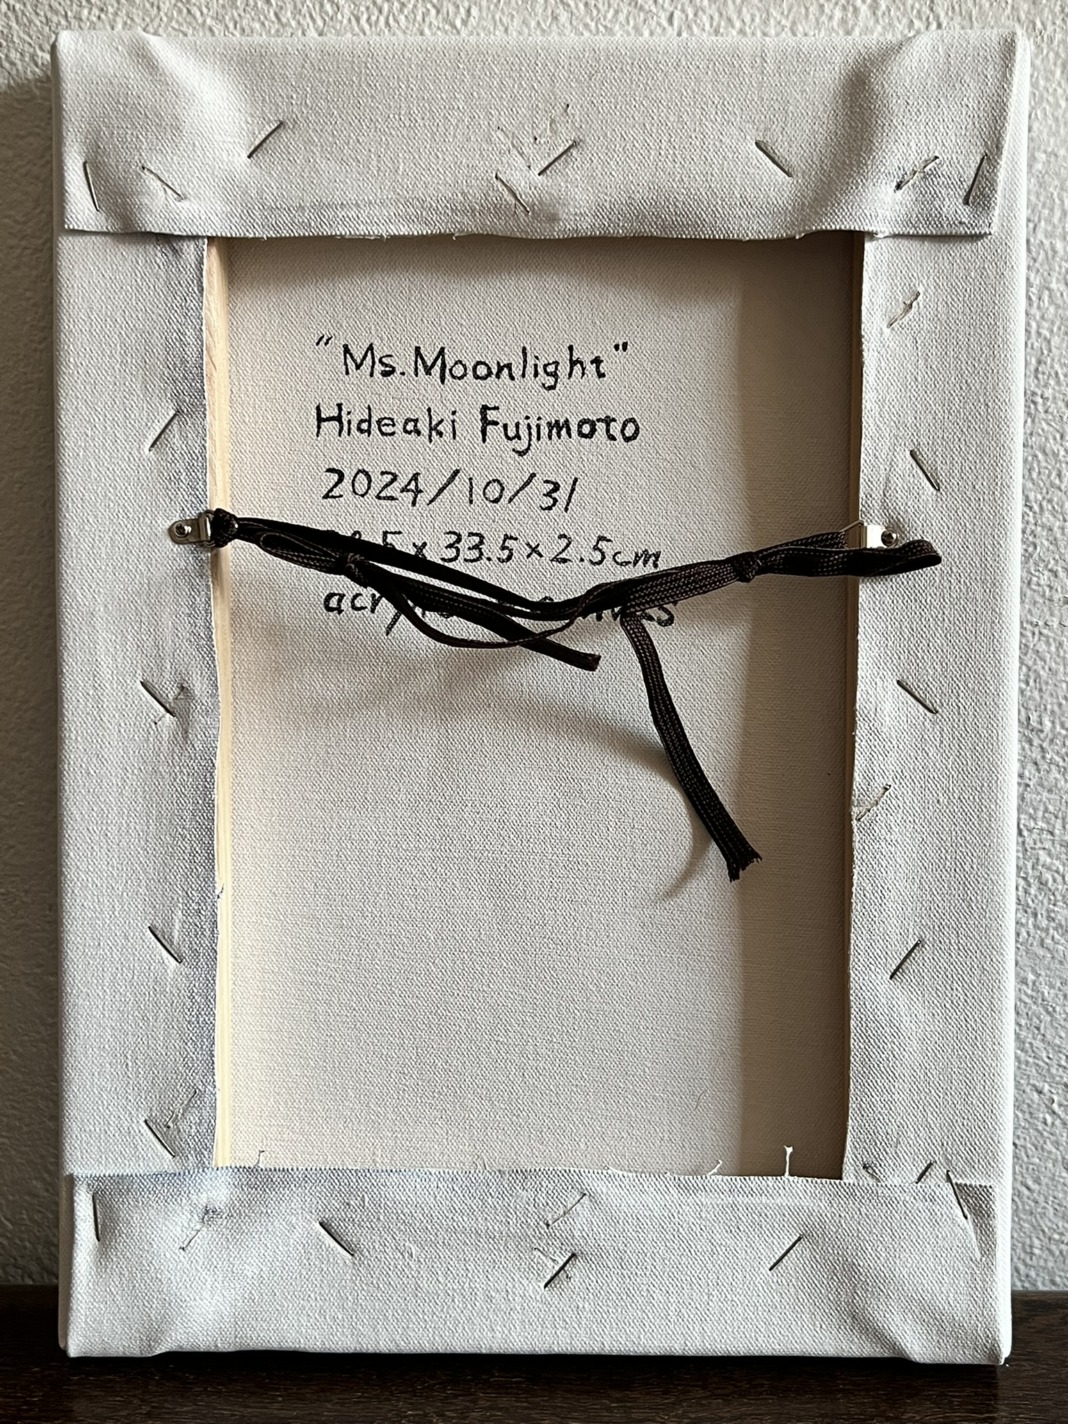 "Ms.Moonlight"
Hideaki Fujimoto
2024/10/31
33.5×2.5cm